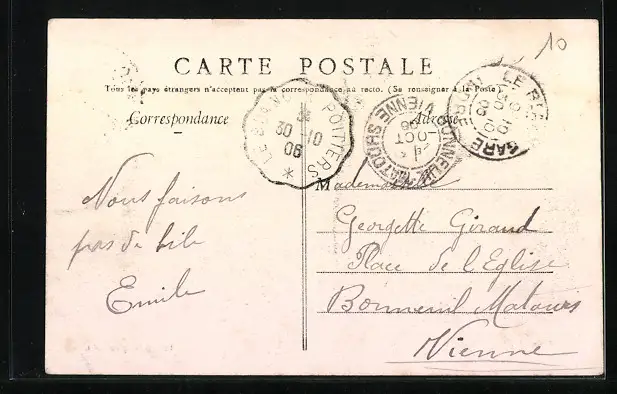 10
CARTE POSTALE
Tous les pays étrangers n'acceptent pas la correspondance au recto. (Se renseigner à la Poste).
Correspondance
Adresse
LE BLANC
POITIERS
30 10
06
BONNEUIL-MATOURS
VIENNE
OCT
06
GARE
LE BL
Nous faisons
pas de bile
Emile
Mademoiselle
Georgette Giraud
Place de l'Eglise
Bonneuil Matours
Vienne